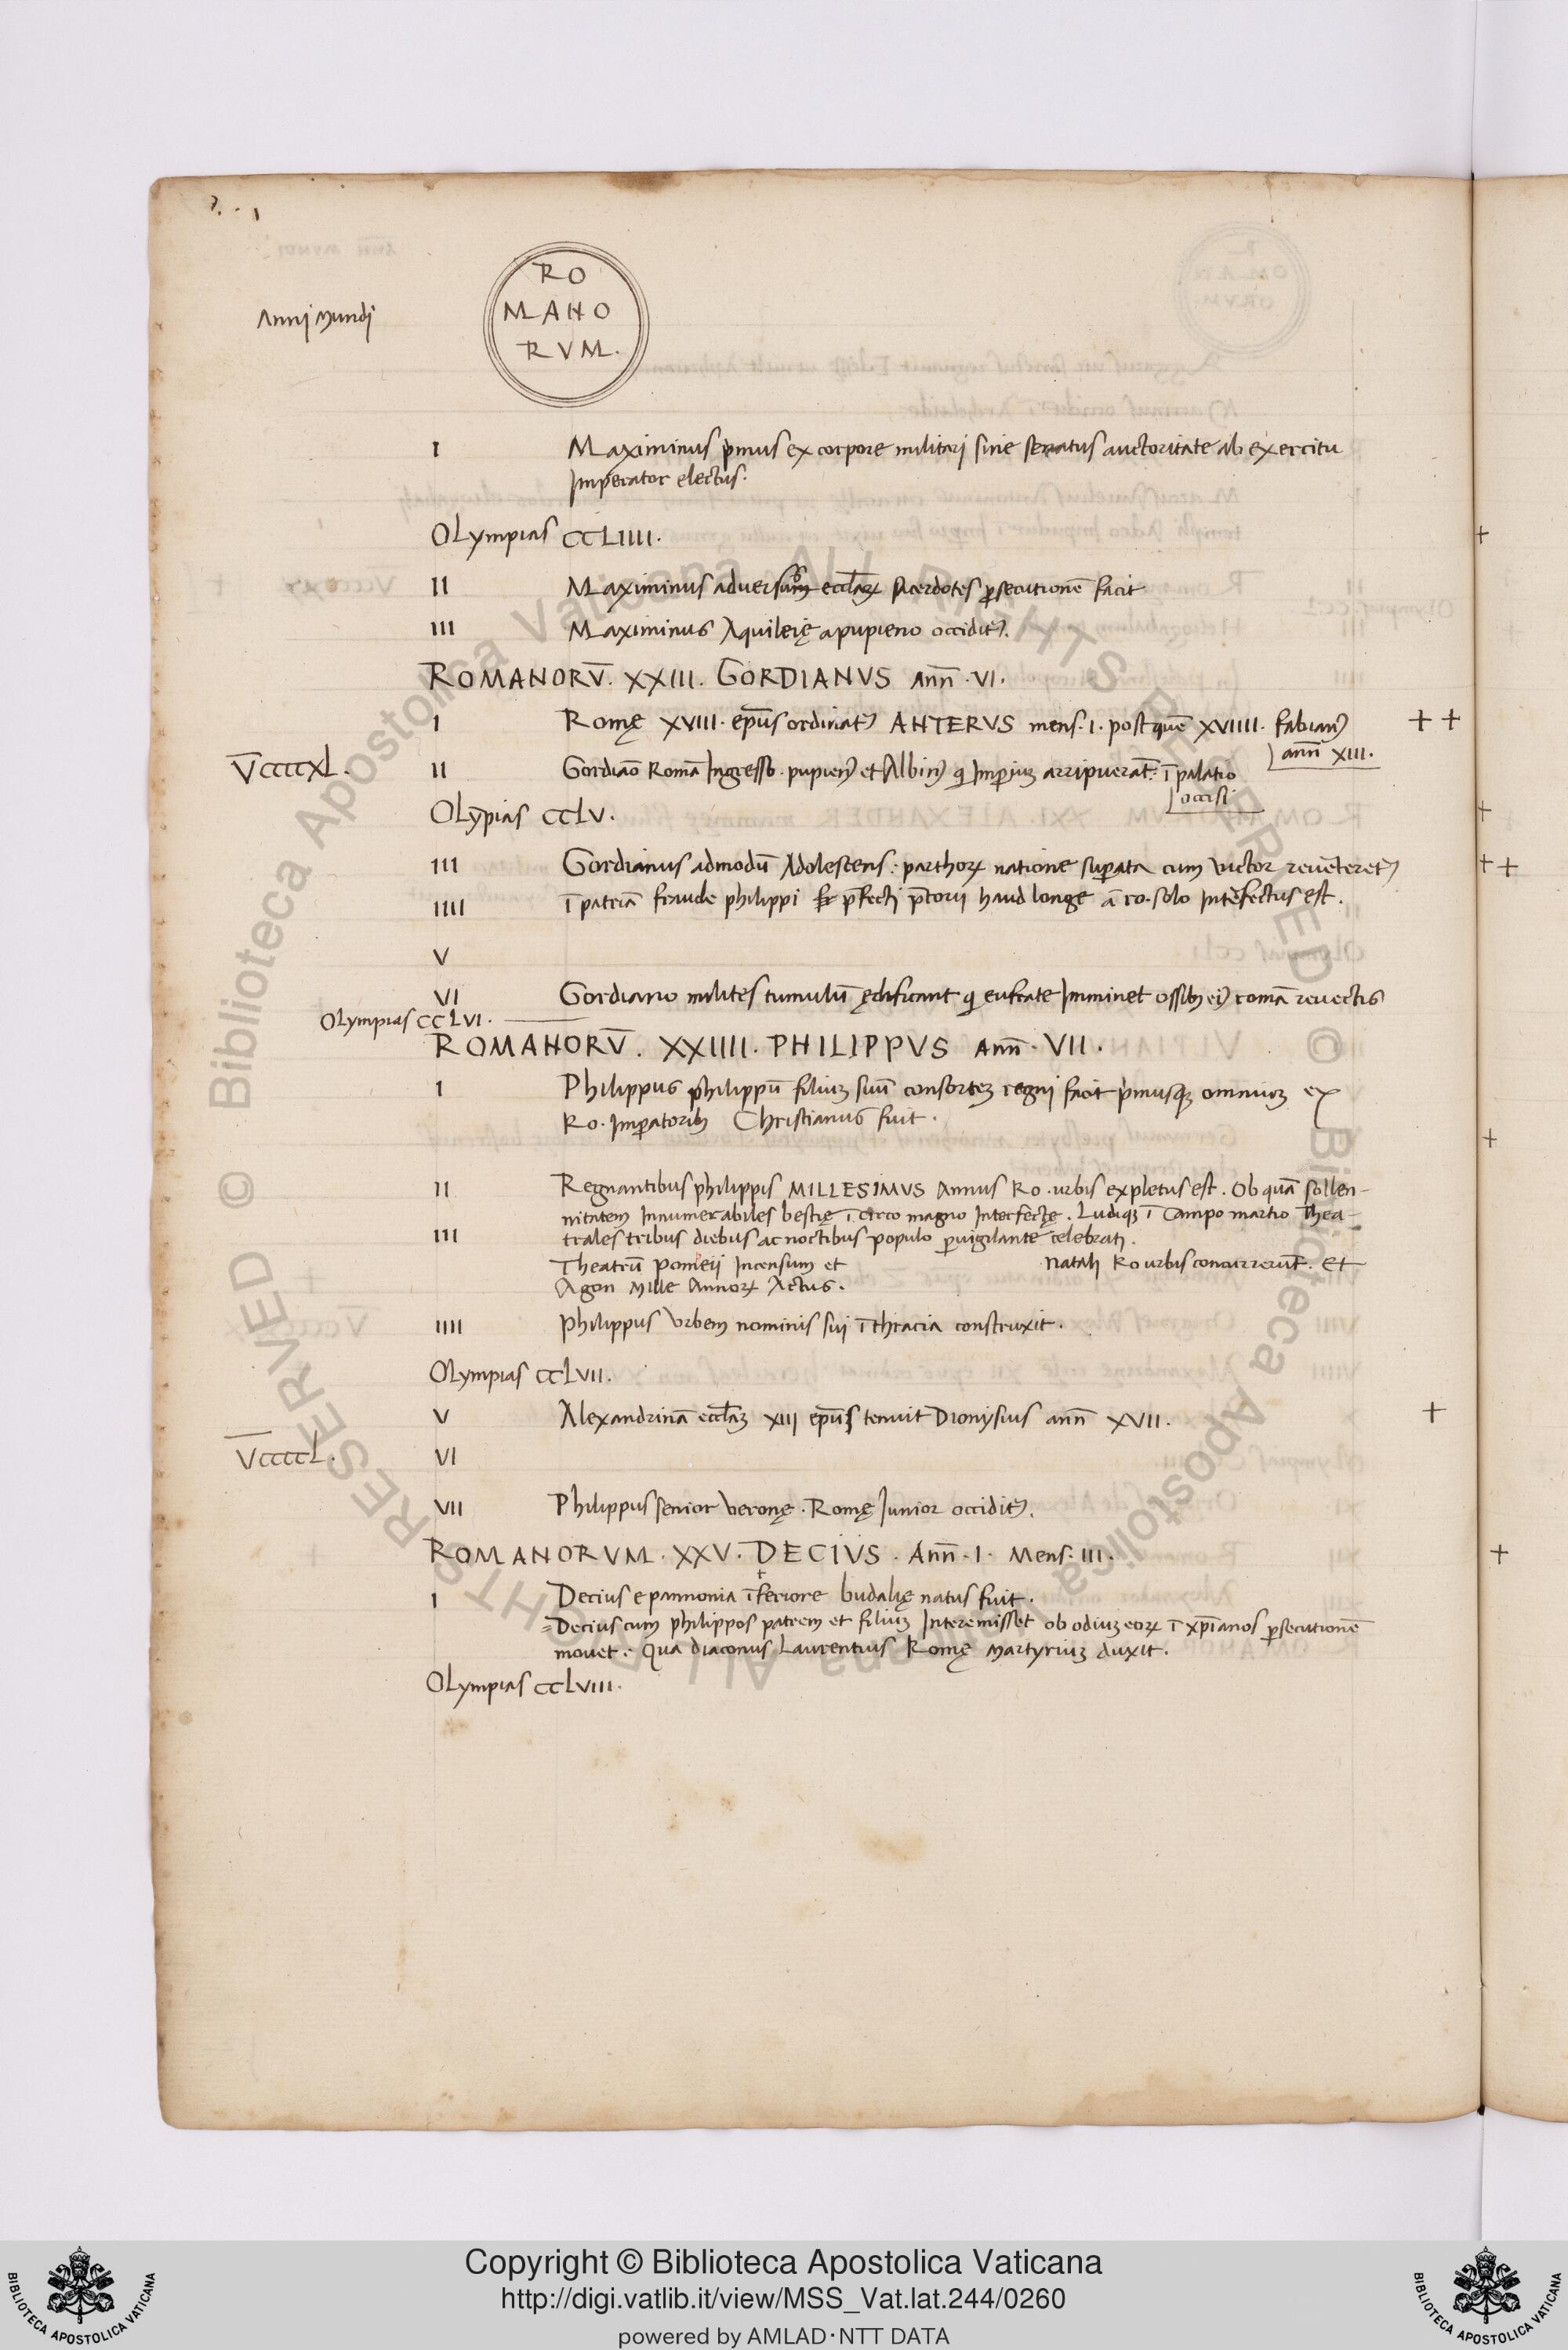 Annj Mundj
RO
MANO
RVM.
I Maximinus pͥmus ex corpore militarj sine senatus auctoritate ab exercitu
Imperator electus.
OLympias CCLIIII.
II Maximinus aduersum eccl̄aꝝ sacerdotes ꝑsecutionē facit
III Maximinus Aquileię a pupieno occidit᷒.
ROMANORV̄. XXIII. GORDIANVS Ann̄. VI.
I Romę XVIII. ep̄us ordinat᷒ ANTERVS mens. I. post quē XVIIII. fabian᷒
ann̄ XIII.
V̄ccccXL.
II Gordiāo Romā Ingresso. pupien᷒ et Albin᷒ qͥ Imꝑium arripuerāt: ī palatio
occisi
OLȳpias CCLV.
III Gordianus admodū Adolescens: parthoꝝ natione suꝑata cum victor reuerteret᷒
IIII ī patriā fraude philippi p̄fectj p̄torii haud longe ā ro. solo Interfectus est.
V
VI Gordiano milites tumulū ędificant qͥ eufrate Imminet ossibꝫ ei᷒ romā reuectis
OLympias CCLVI.
ROMANORV̄. XXIIII. PHILIPPVS Ann̄. VII.
I Philippus philippū filium suū consortem regnj facit pͥmusqꝫ omnium ex
Ro. Imꝑatoribꝫ Christianus fuit.
II Regnantibus philippis MILLESIMVS Annus Ro. urbis expletus est. Ob quā sollen-
nitatem Innumerabiles bestię ī circo magno Interfectę. Ludiqꝫ ī Campo martio Thea-
III trales tribus diebus ac noctibus populo ꝑuigilante celebratj.
Theatrū Pompeii Incensum et natalj Ro urbis concurrerūt. Et
Agon Mille Annoꝝ Actus.
IIII Philippus Vrbem nominis suj ī thracia construxit.
OLympias CCLVII.
V Alexandrinā eccl̄am XIII ep̄us tenuit Dionysius ann̄ XVII.
V̄ccccL.
VI
VII Philippus senior Veronę. Romę Iunior occidit᷒.
ROMANORVM. XXV. DECIVS. Ann̄. I. Mens. III.
I Decius e pannonia īferiore budalię natus fuit.
Decius cum philippos patrem et filium Interemisset ob odium eoꝝ ī xp̄ianos ꝑsecutionē
mouet. Qua diaconus Laurentius Romę Martyrium duxit.
OLympias CCLVIII.
© Biblioteca Apostolica Vaticana ALL RIGHTS RESERVED
© Biblioteca Apostolica Vaticana ALL RIGHTS RESERVED
Copyright © Biblioteca Apostolica Vaticana
http://digi.vatlib.it/view/MSS_Vat.lat.244/0260
powered by AMLAD·NTT DATA
BIBLIOTECA APOSTOLICA VATICANA
BIBLIOTECA APOSTOLICA VATICANA